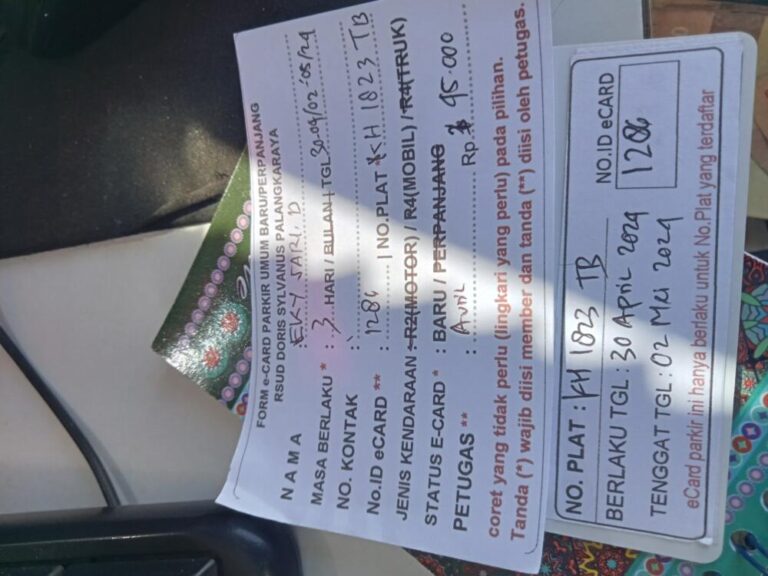 FORM e-CARD PARKIR UMUM BARU/PERPANJANG
RSUD DORIS SYLVANUS PALANGKARAYA
N A M A : EKY SARI. D
MASA BERLAKU * : 3 HARI / BULAN | TGL 30-04/02-05/24
NO. KONTAK :
No.ID eCARD ** : 1286 | NO.PLAT * KH 1823 TB
JENIS KENDARAAN : R2(MOTOR) / R4(MOBIL) / R4(TRUK)
STATUS E-CARD * : BARU / PERPANJANG
PETUGAS ** : Avril Rp. 45.000
coret yang tidak perlu (lingkari yang perlu) pada pilihan.
Tanda (*) wajib diisi member dan tanda (**) diisi oleh petugas.
NO. PLAT : KH 1823 TB
BERLAKU TGL : 30 April 2024
TENGGAT TGL : 02 Mei 2024
NO.ID eCARD
1286
eCard parkir ini hanya berlaku untuk No.Plat yang terdaftar